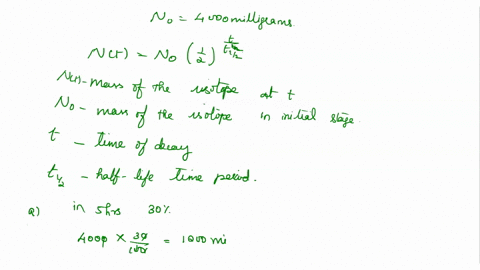 N₀ = 4000 milligrams
N(t) = N₀ (1/2)^(t/t½)
N(t) - mass of the isotope at t
N₀ - mass of the isotope in initial stage
t - time of decay
t½ - half-life time period.
a) in 5hrs 30%
4000 × 30/100 = 1200 mi